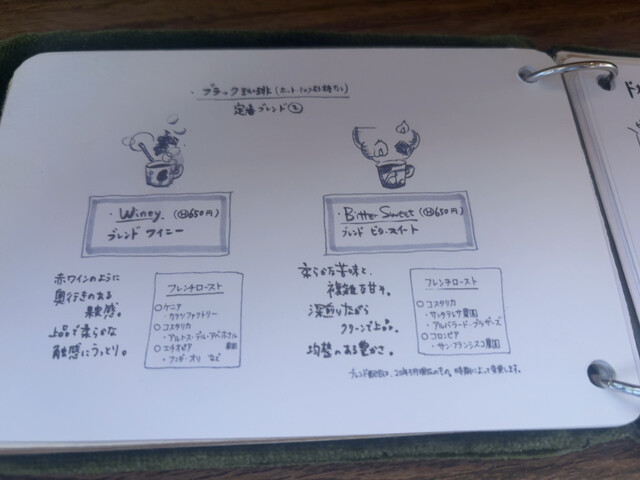 ・ブラック珈琲(ホット
定番ブレンド②
・Winey (H650円)
ブレンド ワイニー
赤ワインのように
奥行きのある
果実感。
上品で柔らかな
触感にうっとり。
フレンチロースト
○ケニア
・カナンファクトリー
○コスタリカ
・アルトス・デル・アベホナル
農園
○エチオピア
・アンギ・オリ など
・Bitter Sweet (H650円)
ブレンド ビタースイート
柔らかな苦味と、
複雑な甘さ。
深煎りながら
クリーンで上品。
均整のある豊かさ。
フレンチロースト
○コスタリカ
・サンタテレサ農園
・アルバラード・ブラザーズ
○コロンビア
・サン・フランシスコ農園
ブレンド配合は、 現在のもの。時期によって変更します。
ド